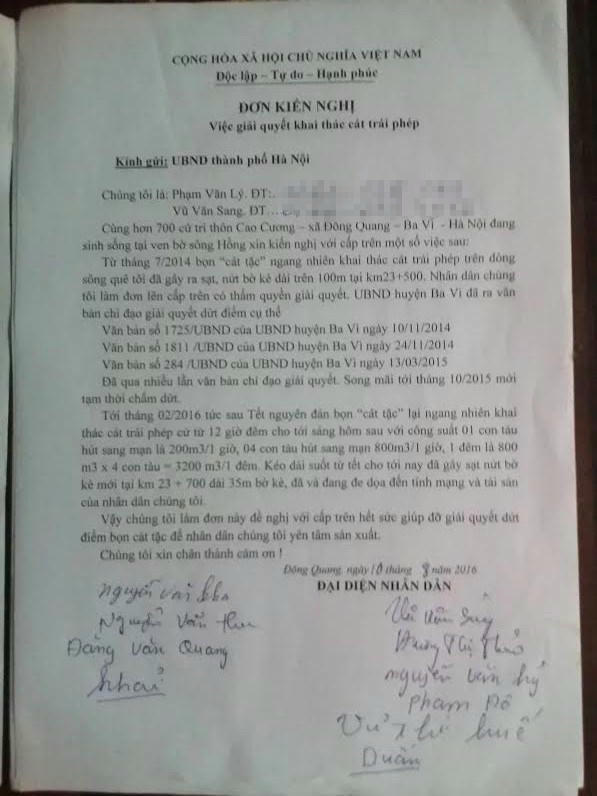 CỘNG HÒA XÃ HỘI CHỦ NGHĨA VIỆT NAM
Độc lập – Tự do – Hạnh phúc
ĐƠN KIẾN NGHỊ
Việc giải quyết khai thác cát trái phép
Kính gửi: UBND thành phố Hà Nội
Chúng tôi là: Phạm Văn Lý. ĐT:.
Vũ Văn Sang. ĐT....
Cùng hơn 700 cử tri thôn Cao Cương – xã Đông Quang – Ba Vì - Hà Nội đang
sinh sống tại ven bờ sông Hồng xin kiến nghị với cấp trên một số việc sau:
Từ tháng 7/2014 bọn “cát tặc” ngang nhiên khai thác cát trái phép trên dòng
sông quê tôi đã gây ra sạt, nứt bờ kè dài trên 100m tại km23+500. Nhân dân chúng
tôi làm đơn lên cấp trên có thẩm quyền giải quyết. UBND huyện Ba Vì đã ra văn
bản chỉ đạo giải quyết dứt điểm cụ thể
Văn bản số 1725/UBND của UBND huyện Ba Vì ngày 10/11/2014
Văn bản số 1811 /UBND của UBND huyện Ba Vì ngày 24/11/2014
Văn bản số 284 /UBND của UBND huyện Ba Vì ngày 13/03/2015
Đã qua nhiều lần văn bản chỉ đạo giải quyết. Song mãi tới tháng 10/2015 mới
tạm thời chấm dứt.
Tới tháng 02/2016 tức sau Tết nguyên đán bọn “cát tặc” lại ngang nhiên khai
thác cát trái phép cứ từ 12 giờ đêm cho tới sáng hôm sau với công suất 01 con tàu
hút sang mạn là 200m3/1 giờ, 04 con tàu hút sang mạn 800m3/1 giờ, 1 đêm là 800
m3 x 4 con tàu = 3200 m3/1 đêm. Kéo dài suốt từ tết cho tới nay đã gây sạt nứt bờ
kè mới tại km 23 + 700 dài 35m bờ kè, đã và đang đe dọa đến tính mạng và tài sản
của nhân dân chúng tôi.
Vậy chúng tôi làm đơn này đề nghị với cấp trên hết sức giúp đỡ giải quyết dứt
điểm bọn cát tặc để nhân dân chúng tôi yên tâm sản xuất.
Chúng tôi xin chân thành cảm ơn !
Đông Quang, ngày 10 tháng 3 năm 2016
ĐẠI DIỆN NHÂN DÂN
Nguyễn Văn
Nguyễn Văn
Đặng Văn Quang
Khải
Văn
Thị
Nguyễn Văn
Phạm
Vũ Thị Huế
Duẩn